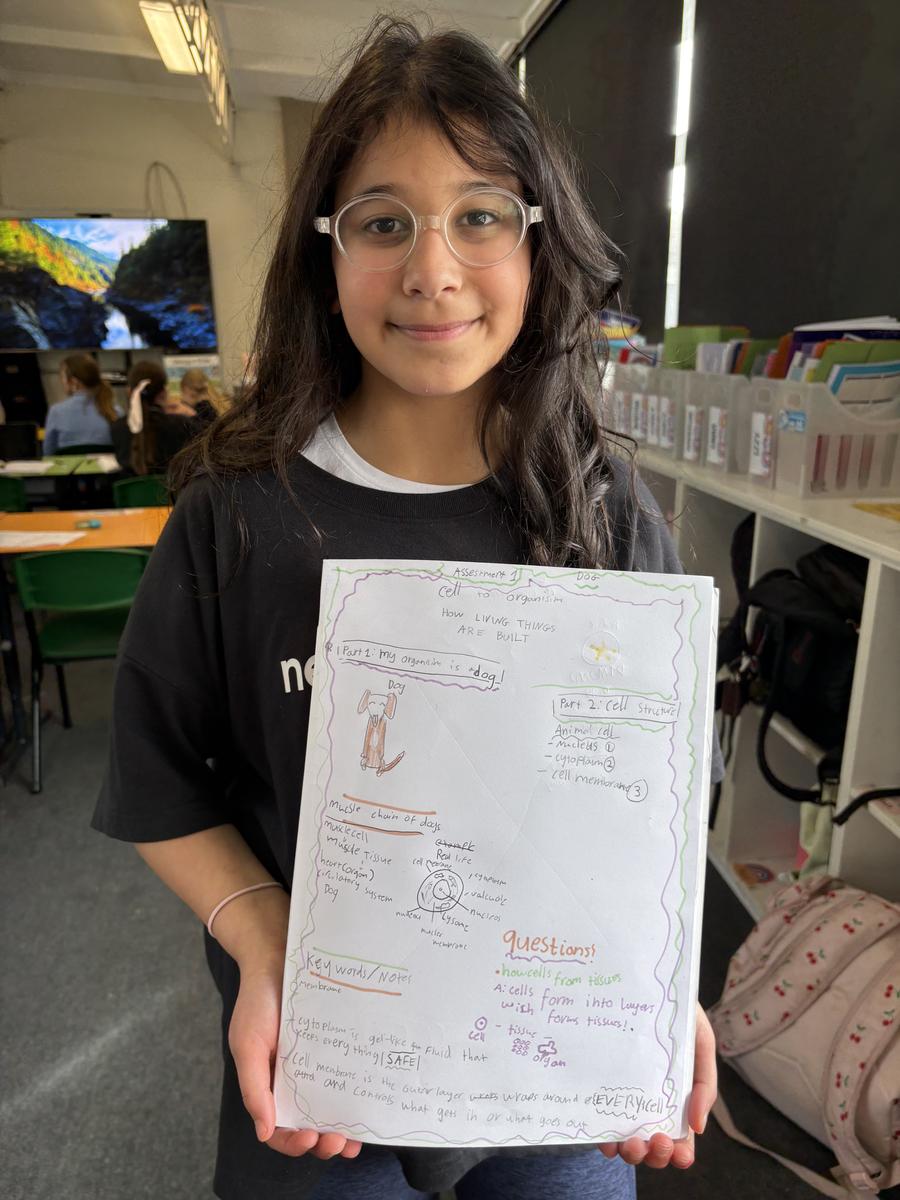 Assessment 1 DOG
Cell to organism
HOW LIVING THINGS
ARE BUILT
Part 1: my organism is a dog!
Dog
Part 2: Cell structure
Animal cell
- nucleus ①
- cytoplasm ②
- cell membrane ③
muscle chain of dogs
muscle cell
muscle Tissue
heart (organ)
circulatory system
Dog
Real life
cell membrane
cytoplasm
valcuole
nucleos
lysome
membrane
questions!
• how cells from tissues
A: cells form into layers
wish forms tissues!.
cell
- tissue
organ
Key words/Notes
membrane
- cytoplasm is gel-like fluid that
keeps everything SAFE
- cell membrane is the outer layer wraps around EVERY cell
and controls what gets in or what goes out
ne